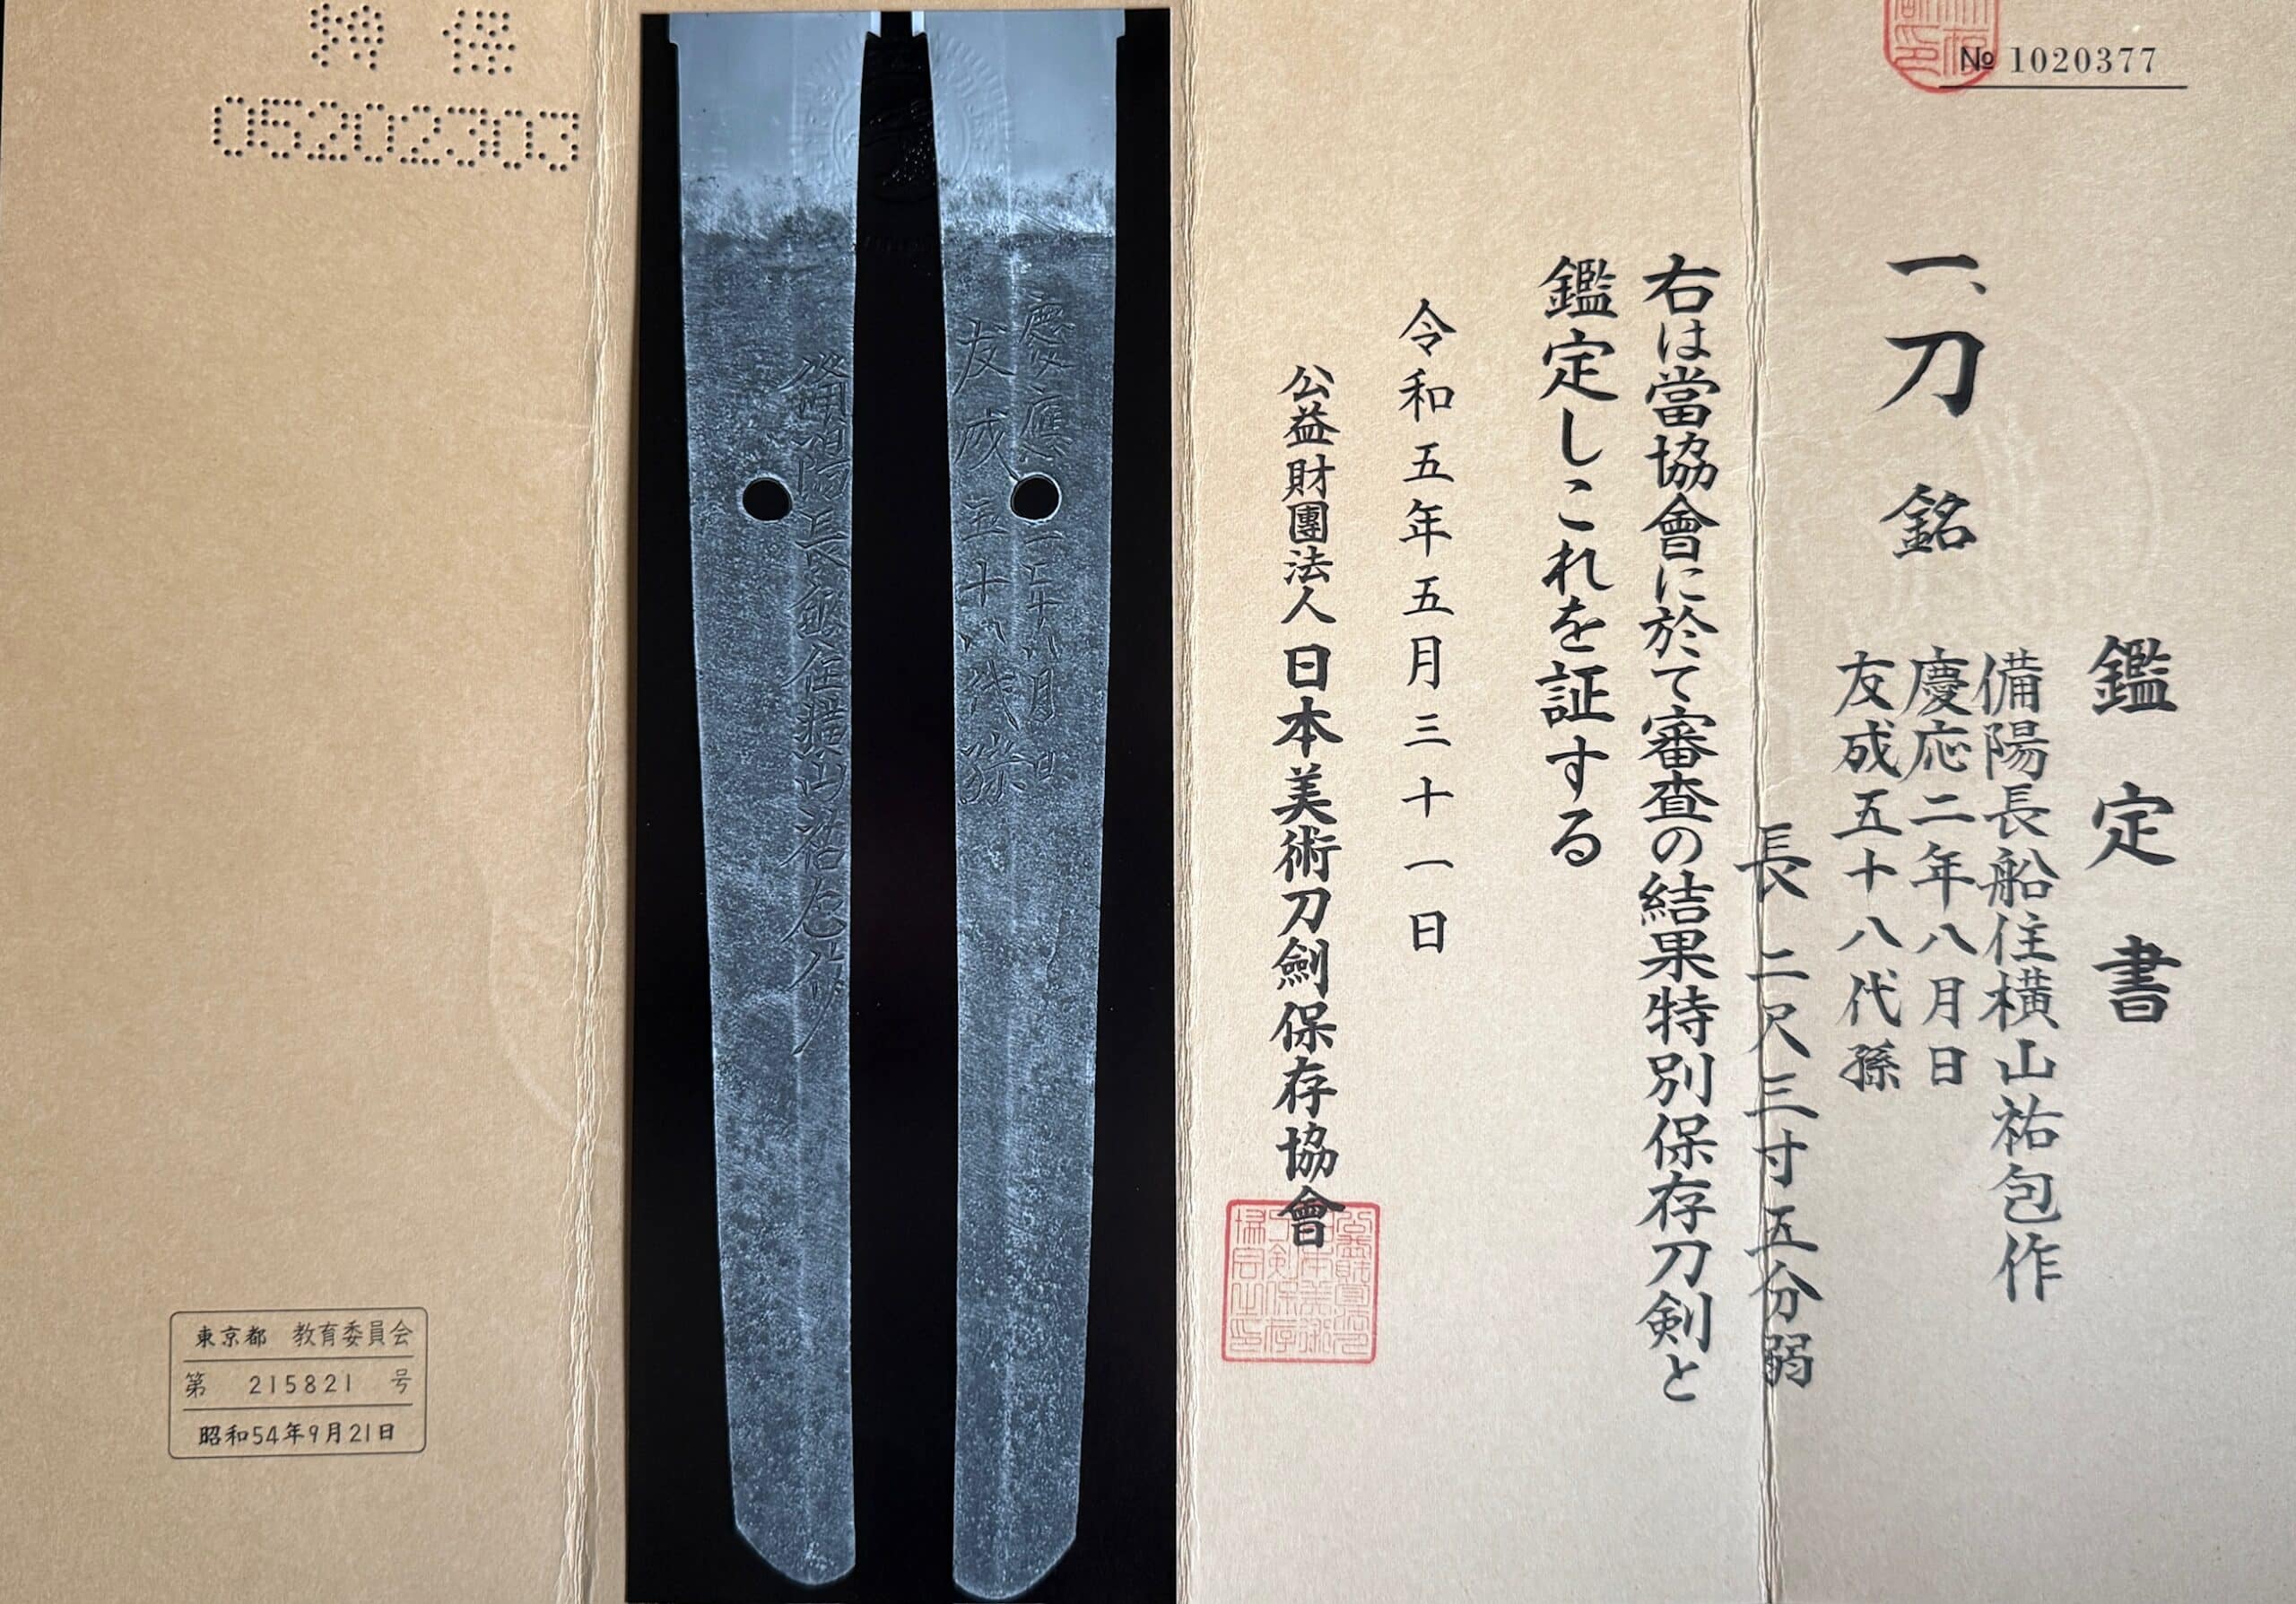 № 1020377
鑑定書
一、刀 銘 備陽長船住横山祐包作
慶応二年八月日
友成五十八代孫
長 二尺三寸五分弱
右は當協會に於て審査の結果特別保存刀剣と
鑑定しこれを証する
令和五年五月三十一日
公益財團法人日本美術刀劍保存協會
慶應二年八月日
友成五十八代孫
備陽長船住横山祐包作
特保
05202303
東京都 教育委員会
第 215821 号
昭和54年9月21日